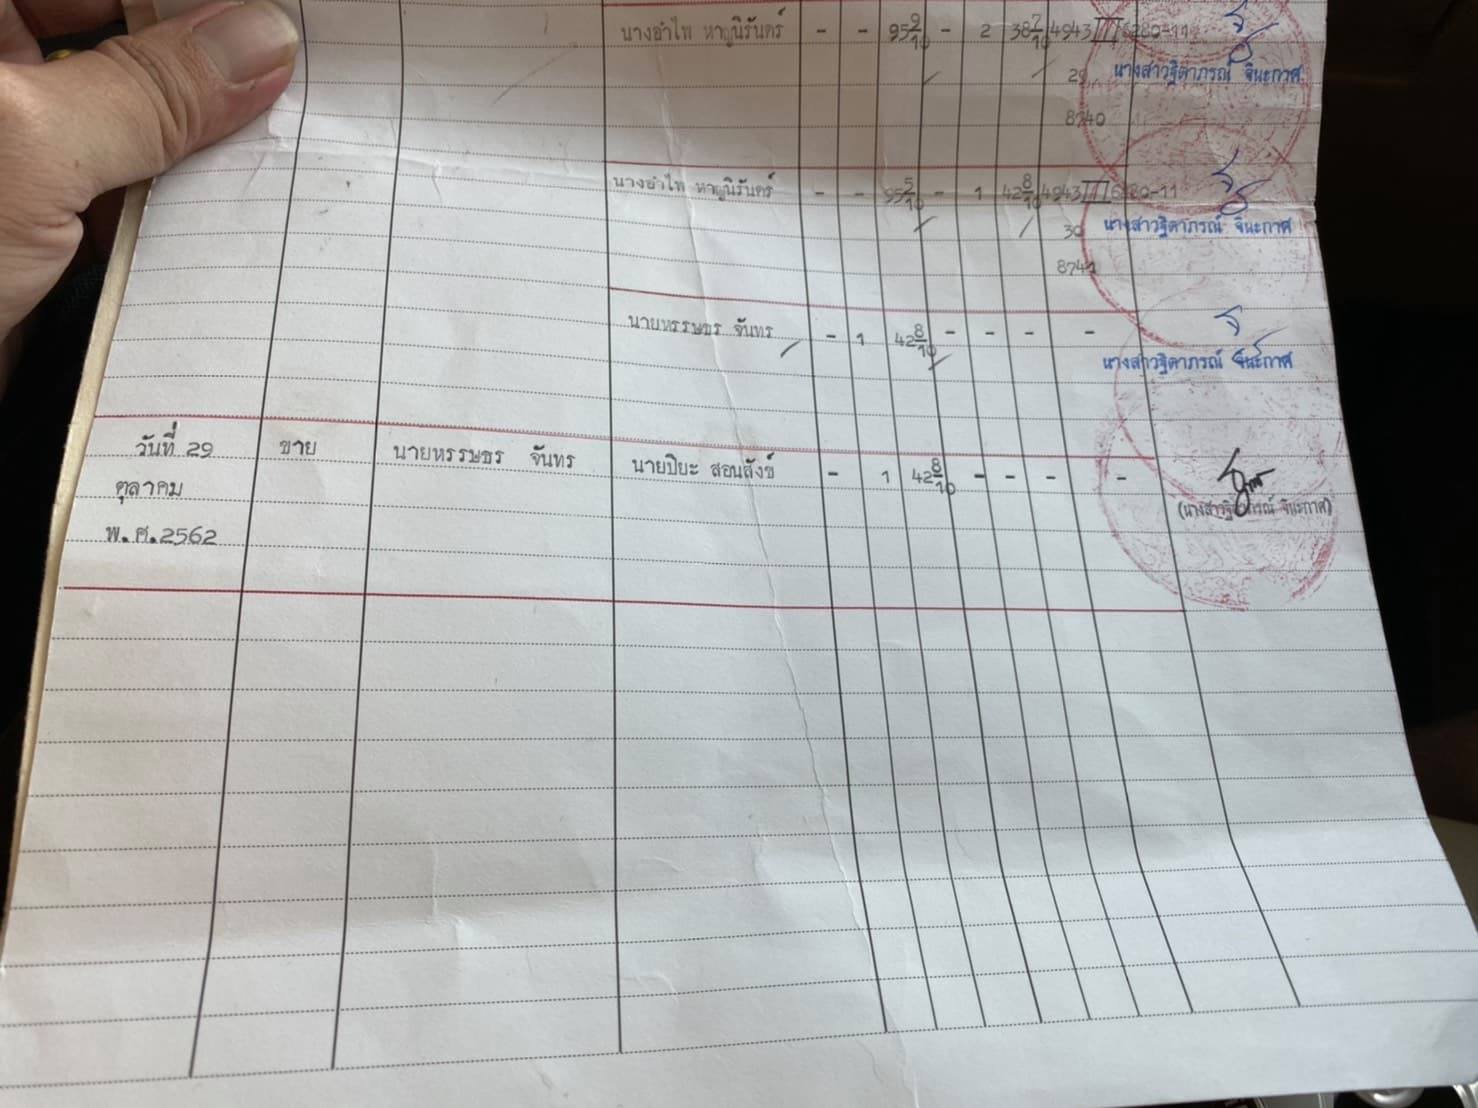 นางอำไพ หาญนิรันดร์ - - 95 9/10 - 2 38 7/10 4943 III 6280-11
29 นางสาวฐิดาภรณ์ จินะกาศ
8740
นางอำไพ หาญนิรันดร์ - - 95 5/10 - 1 42 8/10 4943 III 6280-11
30 นางสาวฐิดาภรณ์ จินะกาศ
8741
นายหรรษธร จันทร - 1 42 8/10 - - - -
นางสาวฐิดาภรณ์ จินะกาศ
วันที่ 29 ขาย นายหรรษธร จันทร นายปิยะ สอนสังข์ - 1 42 8/10 - - - -
ตุลาคม (นางสาวฐิดาภรณ์ จินะกาศ)
พ.ศ.2562